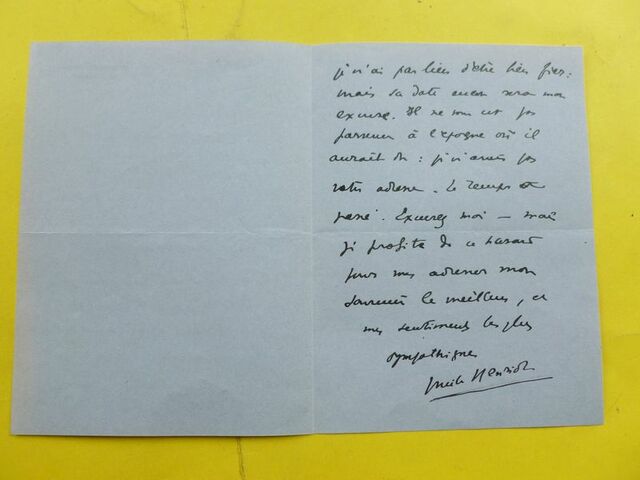 je n'ai pas lieu d'être bien fier :
mais sa date encor sera mon
excuse. Il ne vous est pas
parvenu à l'époque où il
aurait dû : je n'avais pas
votre adresse. Le temps a
passé. Excusez moi — mais
je profite de ce hasard
pour vous adresser mon
souvenir le meilleur, et
mes sentiments les plus
sympathiques
Emile Henriot